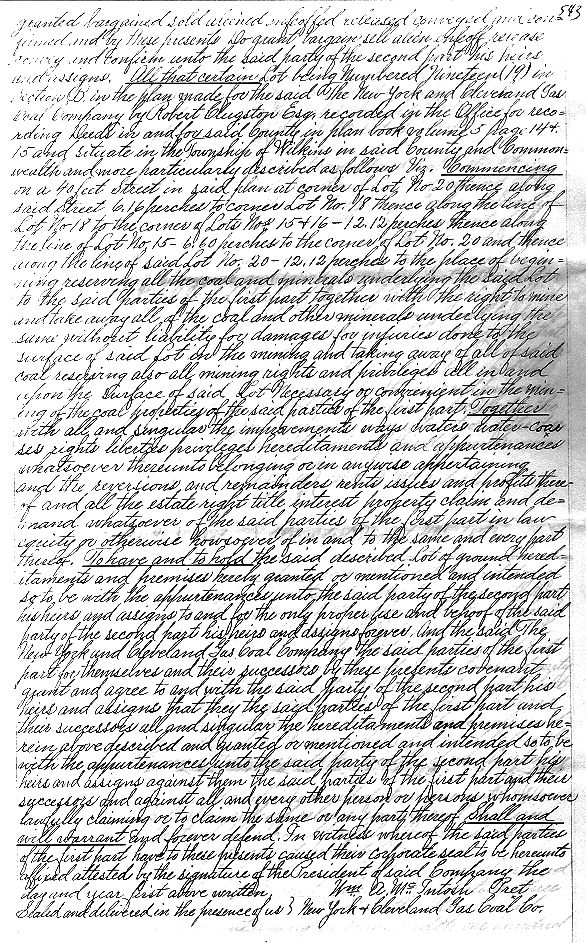 543
granted bargained sold aliened enfeoffed released conveyed and con-
firmed and by these presents Do grant bargain sell alien enfeoff release
convey and confirm unto the said party of the second part his heirs
and assigns. All that certain Lot being numbered Nineteen (19) in
Section D. in the plan made for the said The New York and Cleveland Gas
Coal Company by Robert Elugston Esq. recorded in the Office for reco-
rding Deeds in and for said County in plan book volume 5 page 144.
15 and situate in the Township of Wilkins in said County and Common-
wealth and more particularly described as follows Viz. Commencing
on a 40 feet Street in said plan at corner of Lot, No. 20 thence along
said Street 6.16 perches to corner Lot No. 18 thence along the line of
Lot No. 18 to the corner of Lots Nos 15 & 16 - 12.12 perches thence along
the line of Lot No, 15 - 6.60 perches to the corner of Lot No. 20 and thence
along the line of said Lot No. 20 - 12.12 perches to the place of begin-
ning reserving all the coal and minerals underlying the said Lot
to the said parties of the first part together with the right to mine
and take away all of the coal and other minerals underlying the
same without liability for damages for injuries done to the
surface of said Lot in the mining and taking away of all of said
coal reserving also all mining rights and privileges all in and
upon the surface of said Lot Necessary or convenient in the min-
ing of the coal properties of the said parties of the first part. Together
with all and singular the improvements ways waters water-cour
ses rights liberties privileges hereditaments and appurtenances
whatsoever thereunto belonging or in anywise appertaining
and the reversions and remainders rents issues and profits there-
of and all the estate right title interest property claim and de-
mand whatsoever of the said parties of the first part in law
equity or otherwise howsoever of in and to the same and every part
thereof. To have and to hold the said described Lot of ground hered-
itaments and premises hereby granted or mentioned and intended
so to be with the appurtenances unto the said party of the second part
his heirs and assigns to and for the only proper use and behoof of the said
party of the second part his heirs and assigns forever. And the said The
New York and Cleveland Gas Coal Company the said parties of the first
part for themselves and their successors by these presents covenant
grant and agree to and with the said party of the second part his
heirs and assigns that they the said parties of the first part and
their successors all and singular the hereditaments and premises he-
rein above described and granted or mentioned and intended so to be
with the appurtenances unto the said party of the second part his
heirs and assigns against them the said parties of the first part and their
successors and against all and every other person or persons whomsoever
lawfully claiming or to claim the same or any part thereof Shall and
will warrant and forever defend. In witness whereof the said parties
of the first part have to these presents caused their corporate seal to be hereunto
affixed attested by the signature of the President of said Company the
day and year first above written, Wm A. Mc Intosh Pret
Sealed and delivered in the presence of us } New York & Cleveland Gas Coal Co.